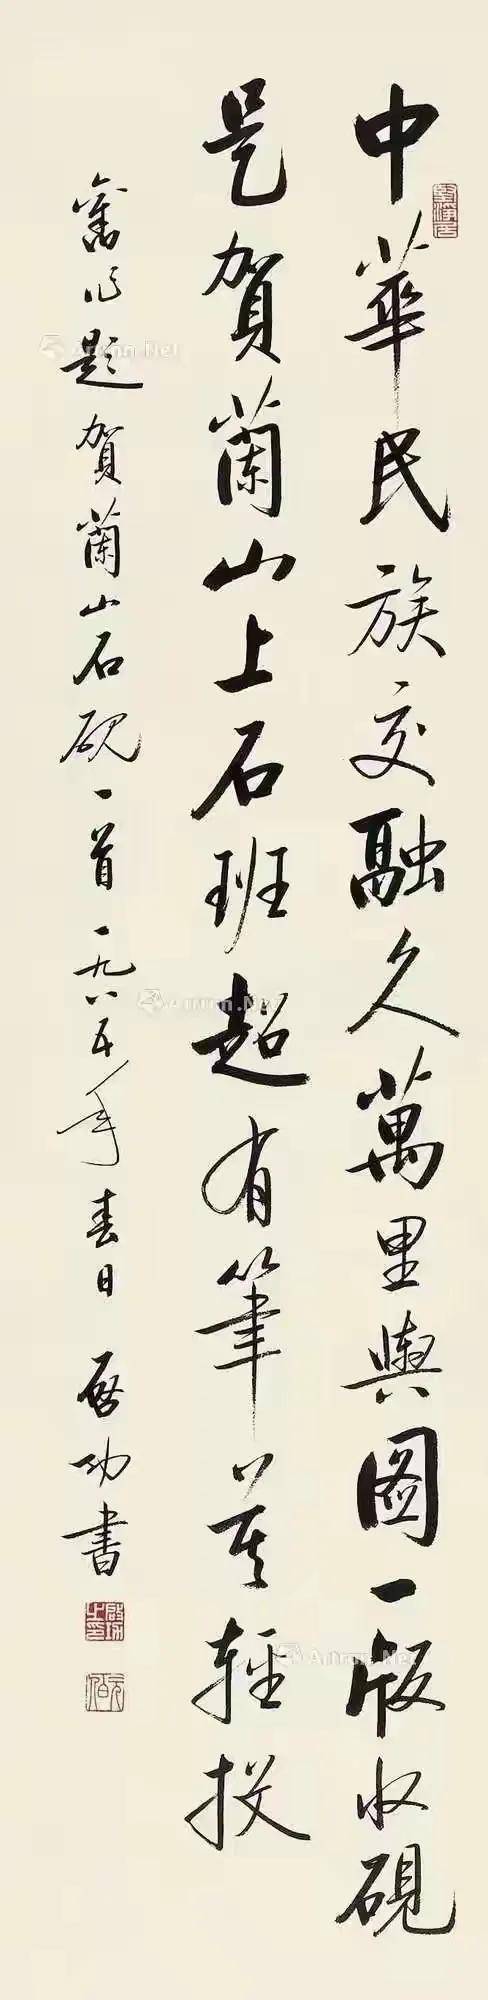 中華民族交融久萬里輿圖一版收硯
是賀蘭山上石班超有筆莫輕投
舊作題賀蘭山石硯一首一九八五年春日啓功書
啟功之印
元白
Artron.Net
Artron.Net
Artron.Net